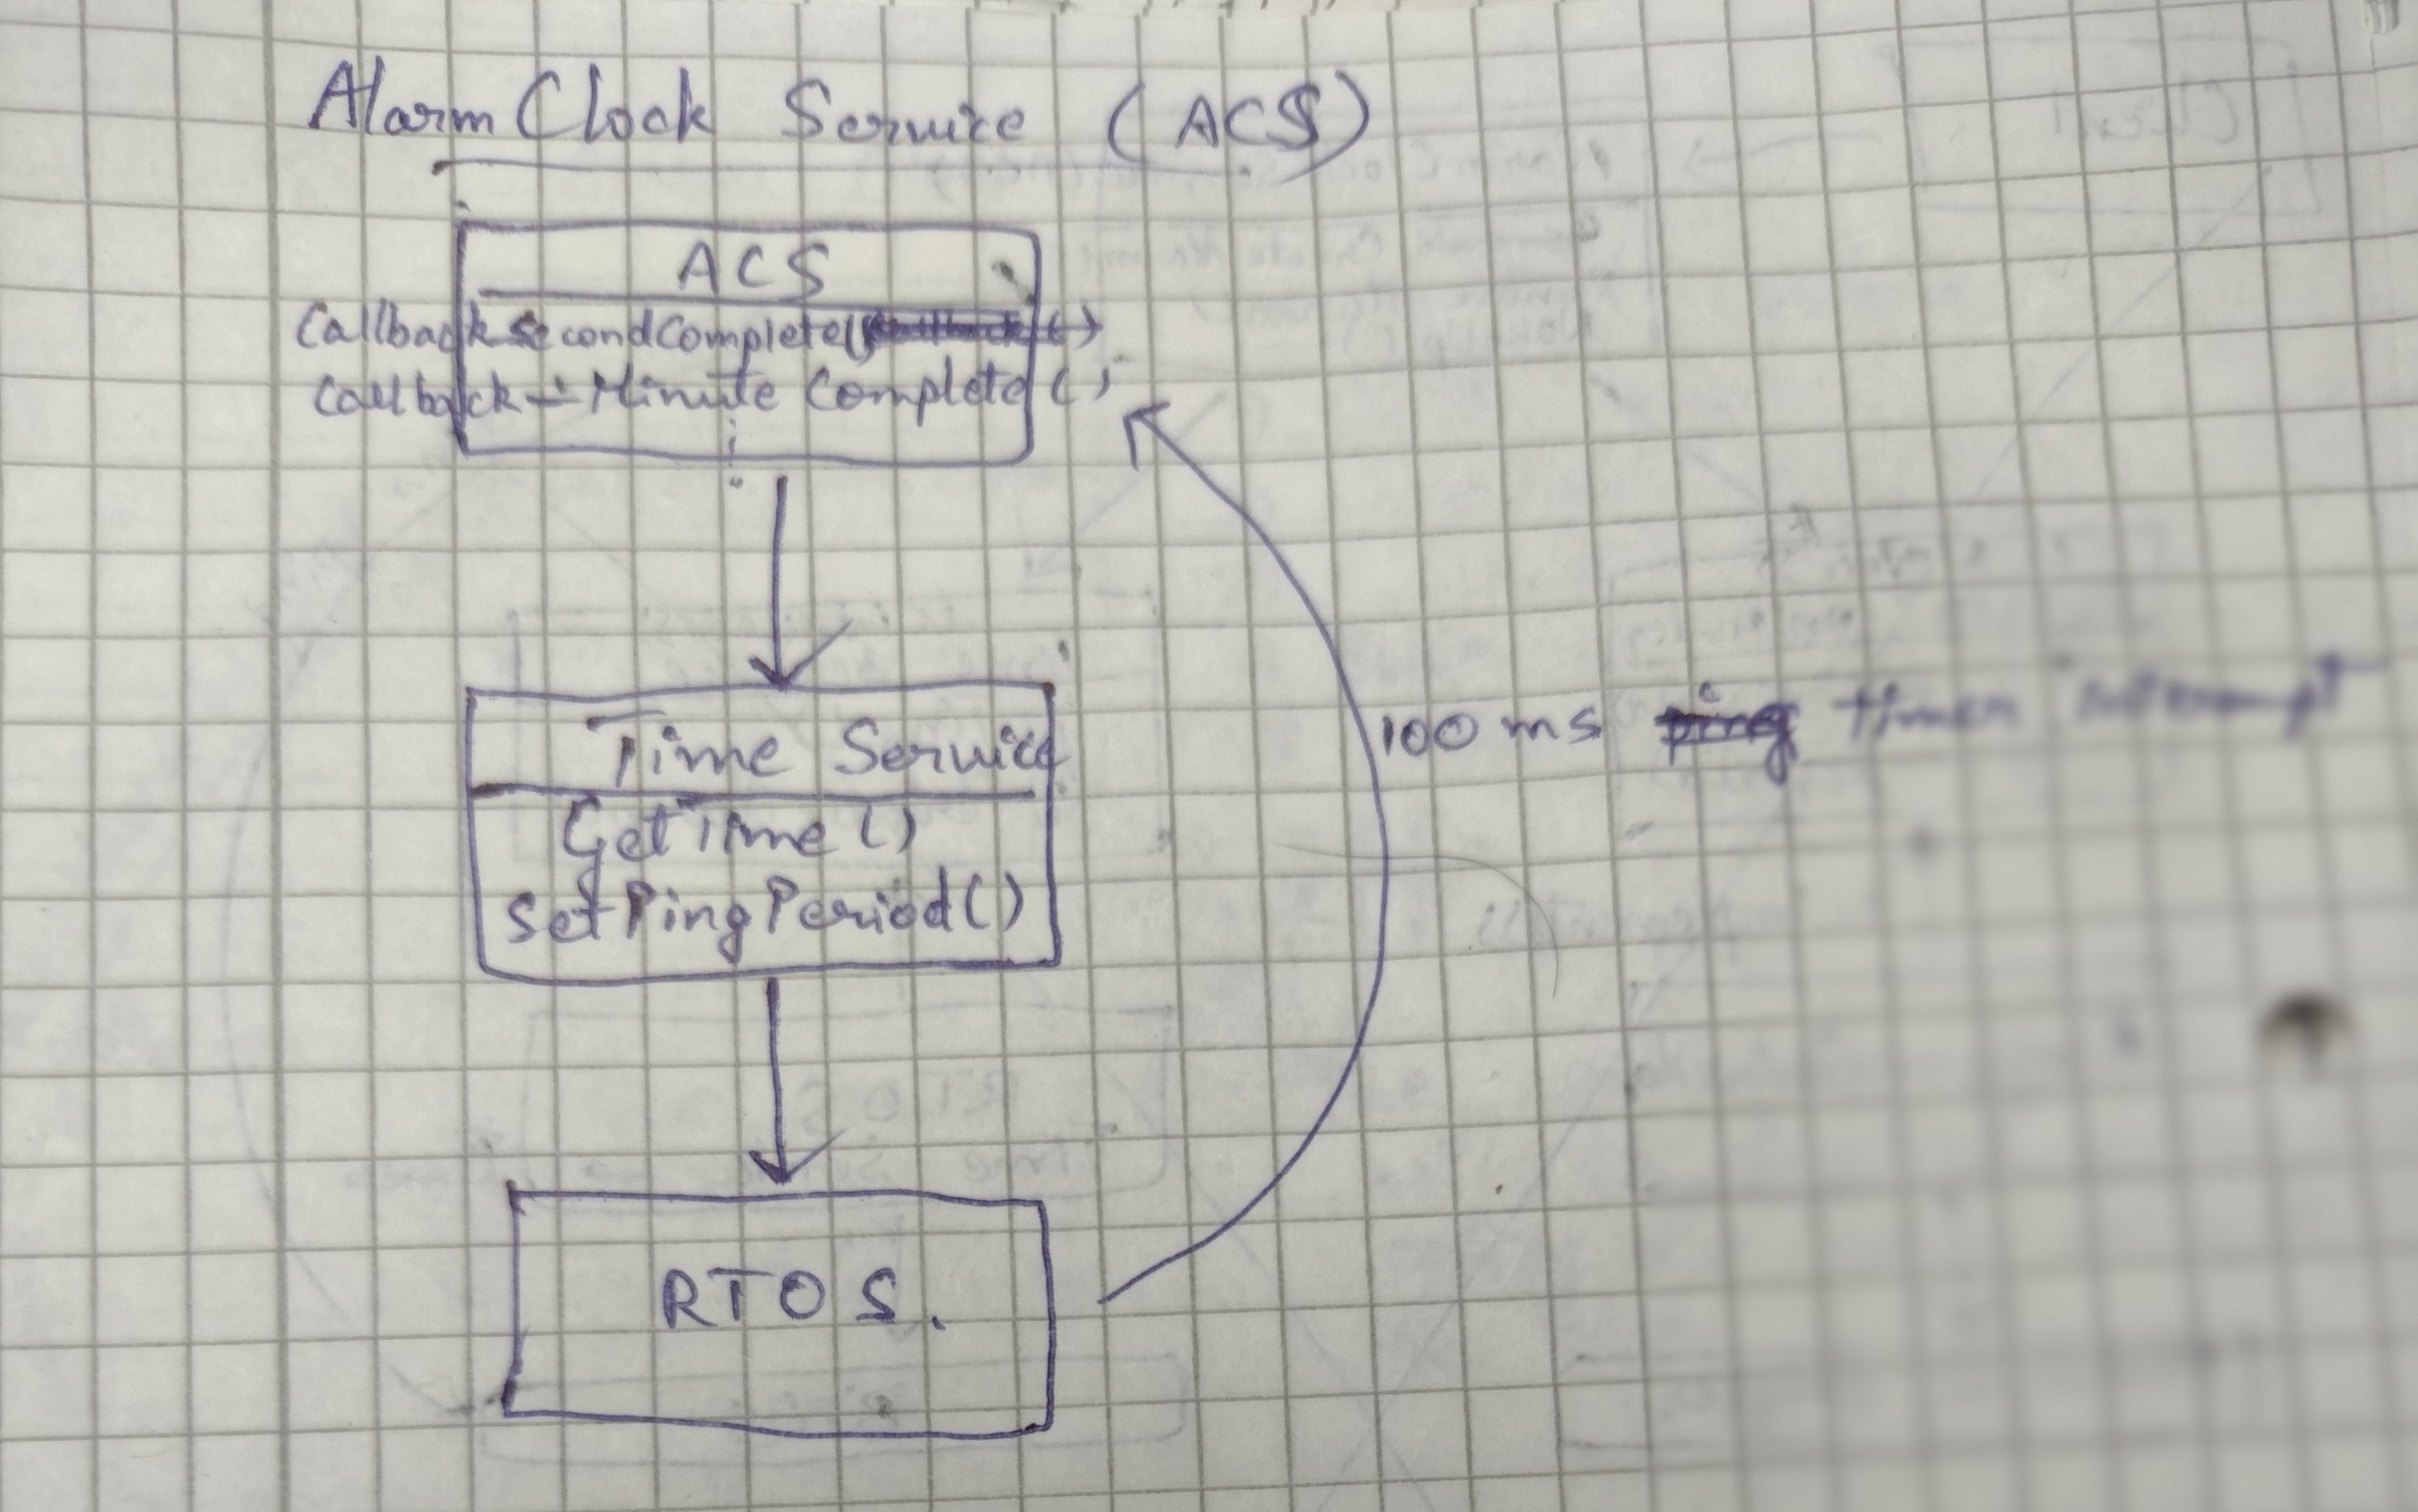 Alarm Clock Service (ACS)
ACS
Callback SecondComplete()
Callback - Minute Complete ()
Time Service
GetTime ()
SetPingPeriod()
100 ms ping timer interrupt
RTOS.